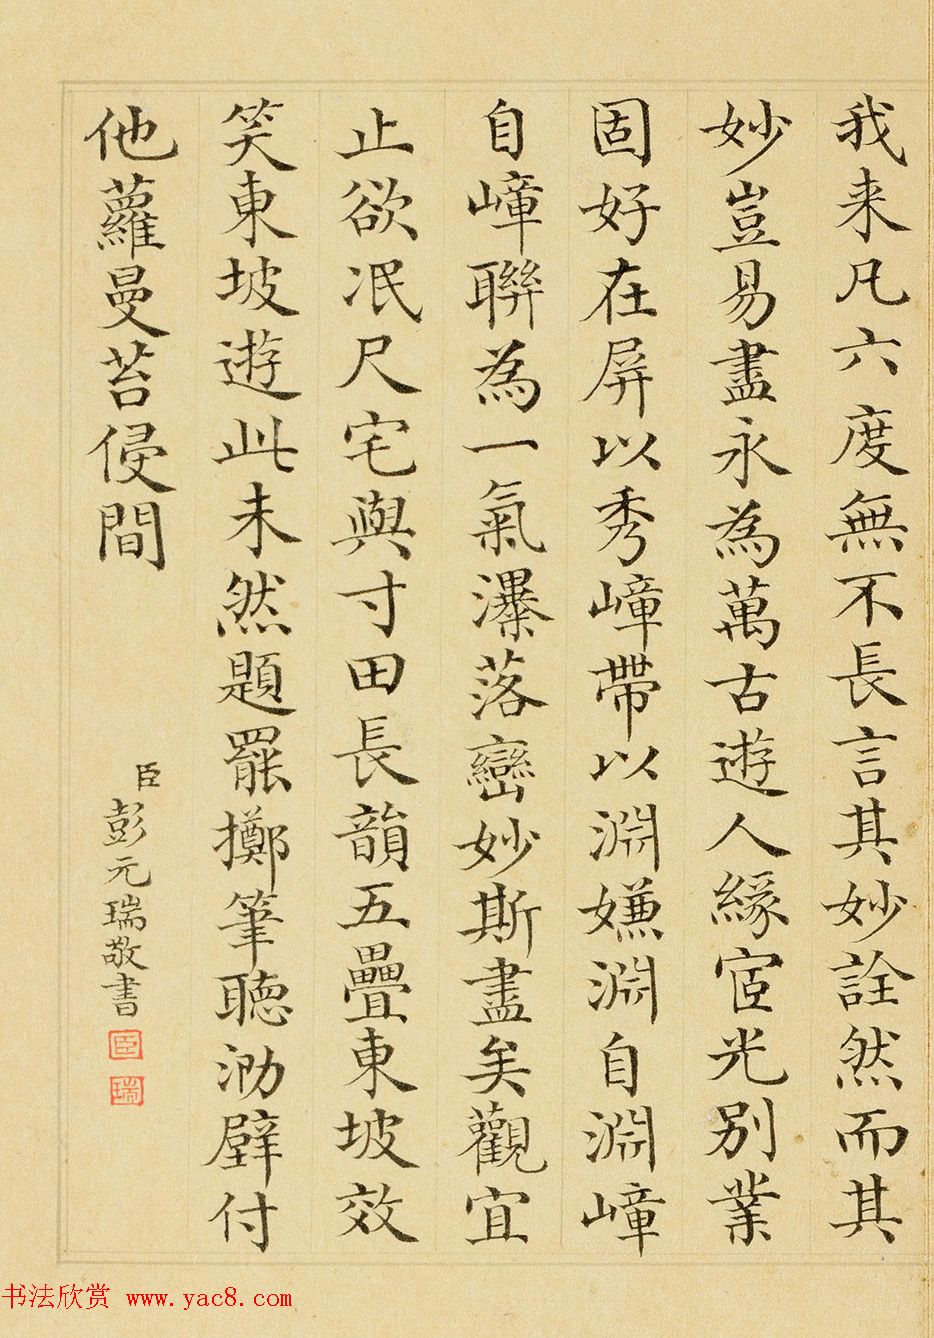 我来凡六度無不長言其妙詮然而其
妙豈易盡永為萬古遊人緣宧光別業
固好在屏以秀嶂帶以淵嫌淵自淵嶂
自嶂聯為一氣瀑落巒妙斯盡矣觀宜
止欲泯尺宅與寸田長韻五疊東坡效
笑東坡遊此未然題罷擲筆聽泐壁付
他蘿蔓苔侵間
臣彭元瑞敬書
臣
瑞
书法欣赏 www.yac8.com